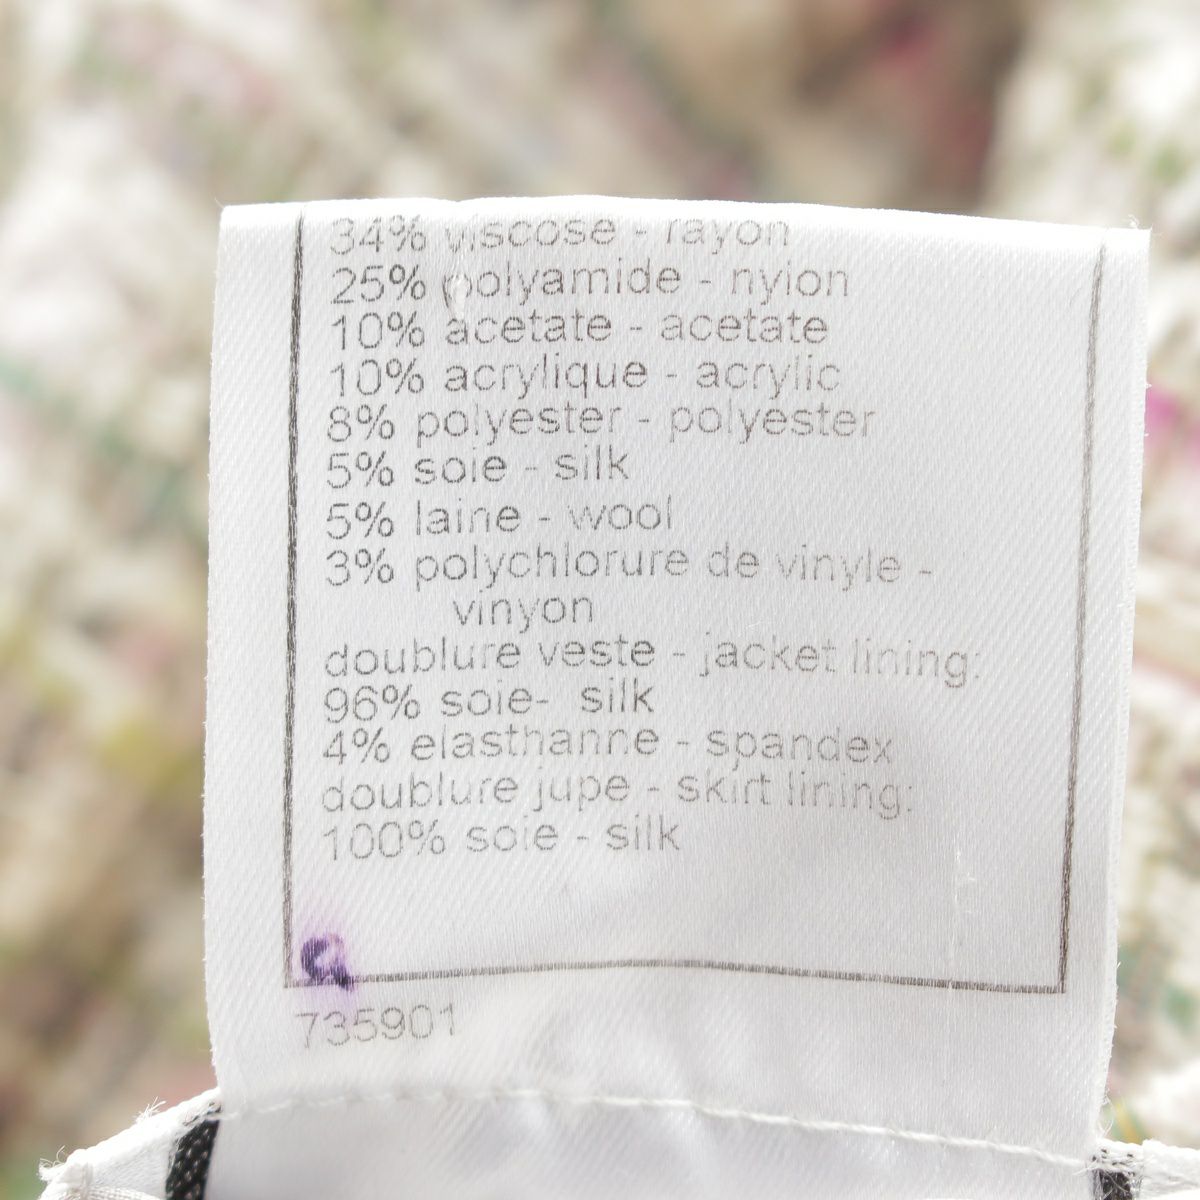 34% viscose - rayon
25% polyamide - nylon
10% acetate - acetate
10% acrylique - acrylic
8% polyester - polyester
5% soie - silk
5% laine - wool
3% polychlorure de vinyle -
vinyon
doublure veste - jacket lining:
96% soie-  silk
4% elasthanne - spandex
doublure jupe - skirt lining:
100% soie - silk
735901